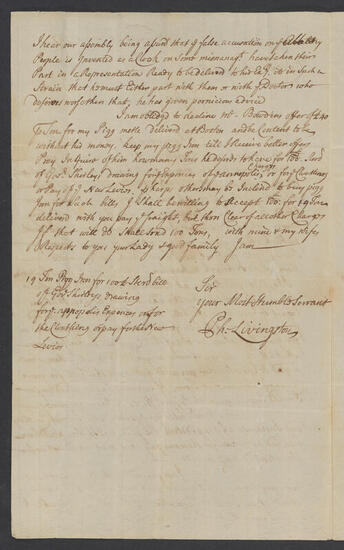 I hear our assembly being assurd that y false accusation on y Albany
People is Invented as a Cloak on Some mismanag have taken their
Part in a Representation Ready to be delivred to his Exy. its in Such a
Strain that he must Either part with them or with y Doctor who
deserves no other than, he has given pernicious advice
I am obliged to decline Mr. Bowdoins offer of £40
Ton for my Pigg mettle delivred at Boston and he Content to be
with out his money, keep my pigg Iron till I Receive better offers
Pray Inquire of him how many Tons he desirds to have for 100. Ster
of Govr. Shirley, drawing for y Expences of y Cannopolis, or for y Cloathing
or Pay of y New Levies. perhaps others may be Inclined to buy pigg
Iron for Such bills, I Shall be willing to Accept 100. for 19 Tun
delivred with you pay y fraight, but then Clear of all other Charges
If that will do I Shall Send 100 Tons, with mine & my Wifes
Respects to you your Lady & good family I am
19 Tun Pigg Iron for 100 £ Sterl bill
of Govr Shirleys drawing
for Expences or for
the Cloathing or pay for the New
Levies
Sir
your Most Humble Servant
Ph: Livingston